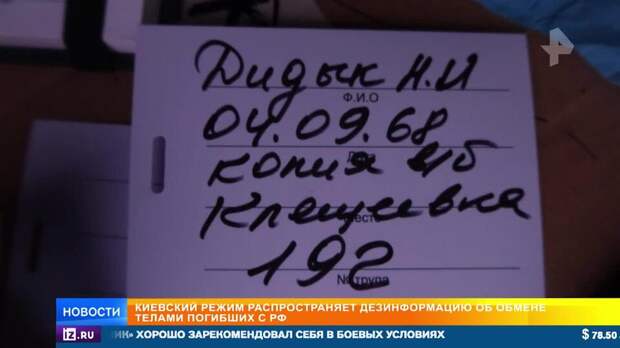 Дидык Н.И
Ф.И.О
04.09.68
копия
Клещиевка
Место
192
№ трупа
НОВОСТИ
КИЕВСКИЙ РЕЖИМ РАСПРОСТРАНЯЕТ ДЕЗИНФОРМАЦИЮ ОБ ОБМЕНЕ
ТЕЛАМИ ПОГИБШИХ С РФ
IZ.RU
ХОРОШО ЗАРЕКОМЕНДОВАЛ СЕБЯ В БОЕВЫХ УСЛОВИЯХ
$ 78.50